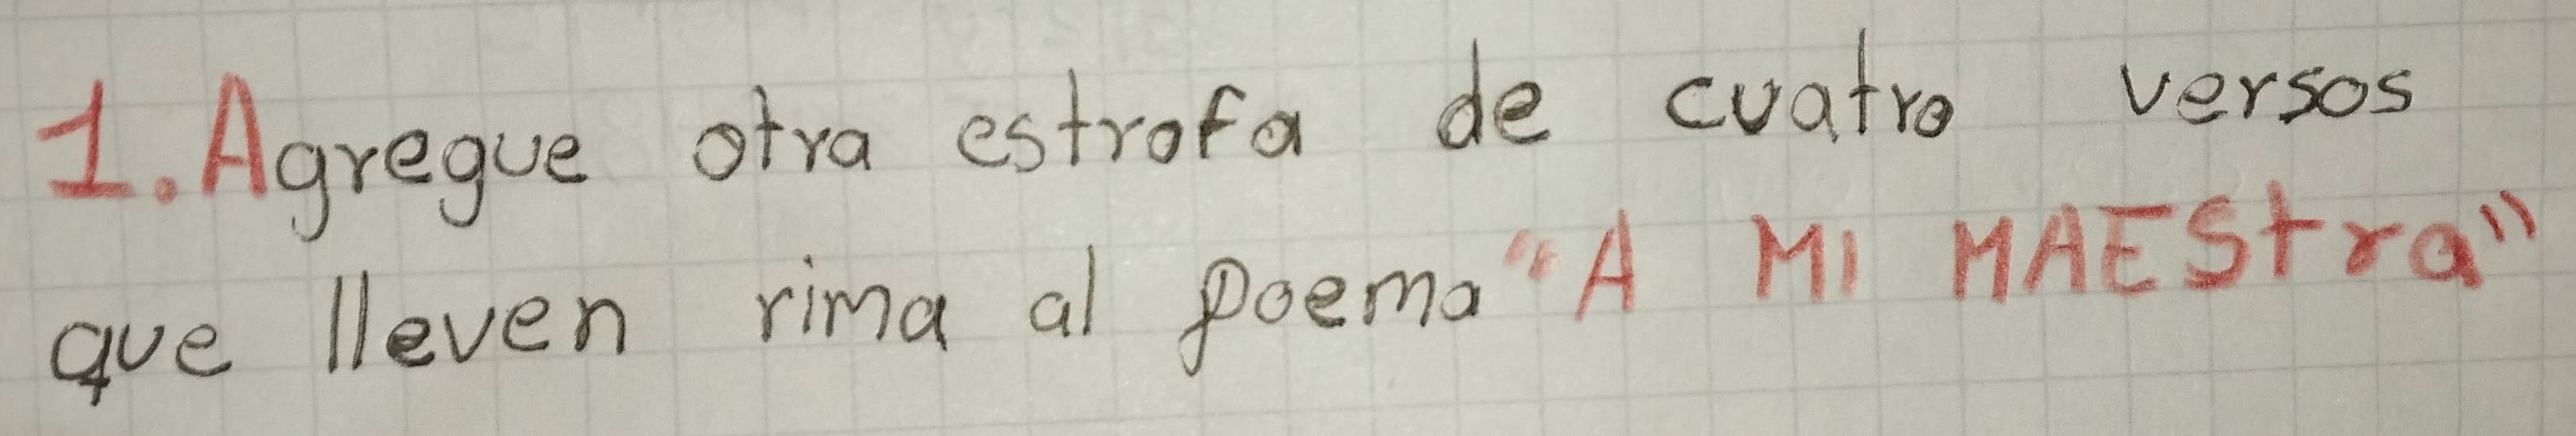 1. Agregue otra estrofa de cuatro versos
que lleven rima al poema "A MI MAEStra"